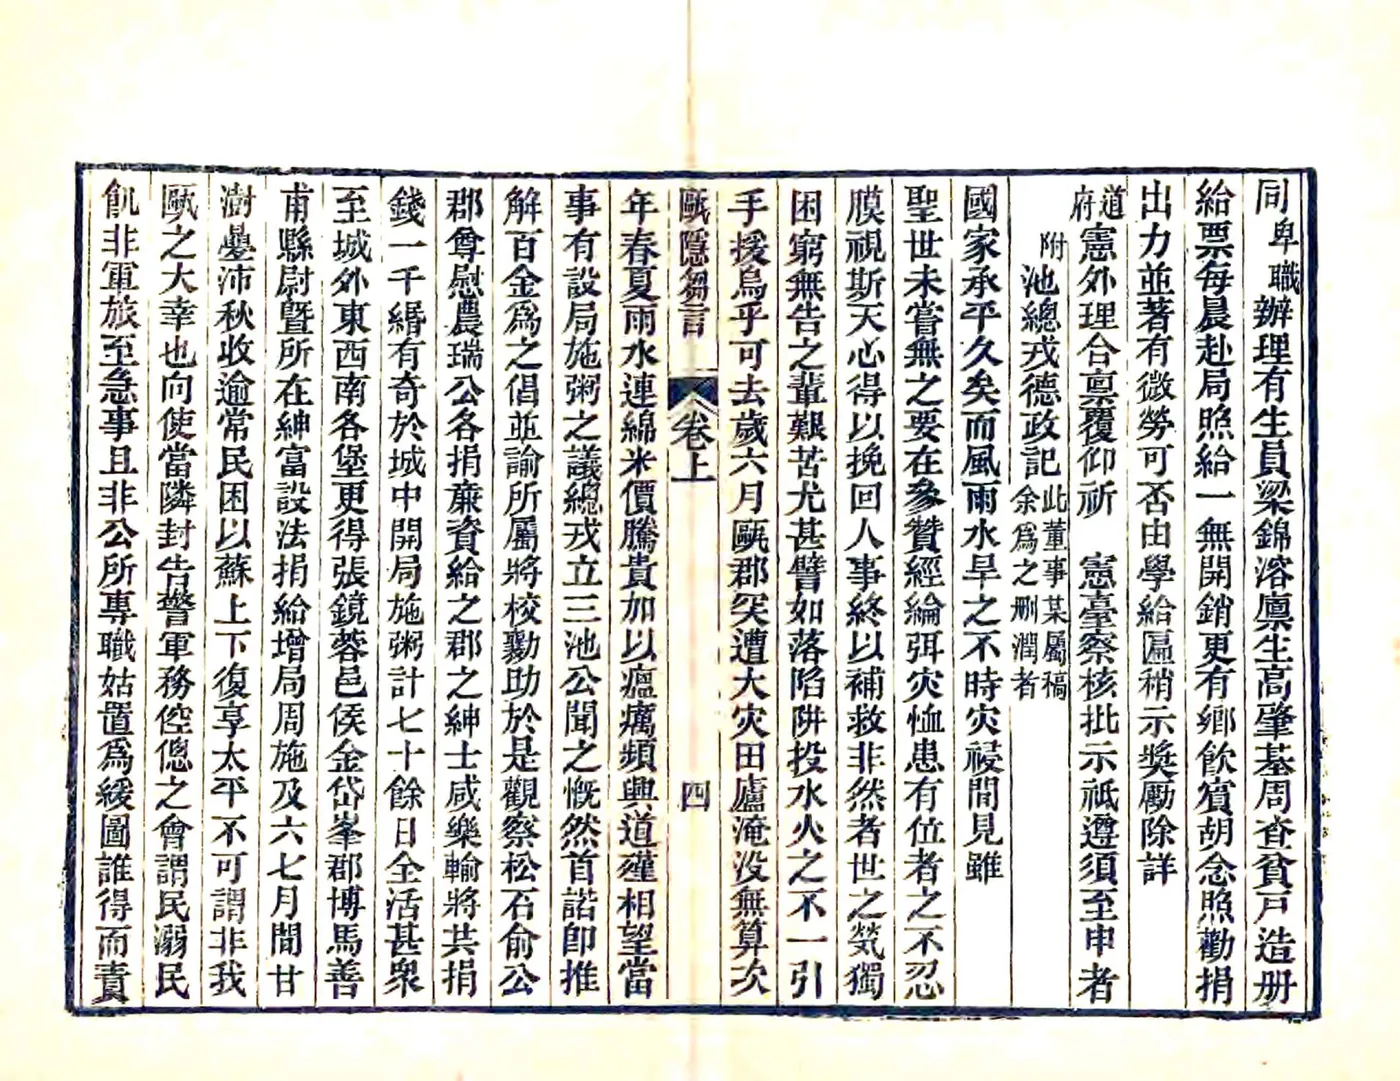 同卑職辦理有生員梁錦溶廩生高肇基周查貧戸造册
給票每晨赴局照給一無開銷更有鄉飲賓胡念照勸捐
出力並著有微勞可否由學給匾稍示獎勵除詳
道府憲外理合禀覆仰祈　憲臺察核批示祗遵須至申者
附池總戎德政記此董事某屬稿余爲之刪潤者
國家承平久矣而風雨水旱之不時灾祲間見雖
聖世未嘗無之要在參贊經綸弭灾恤患有位者之不忍
膜視斯天心得以挽回人事終以補救非然者世之煢獨
困窮無告之輩艱苦尤甚譬如落陷阱投水火之不一引
手援烏乎可去歲六月甌郡突遭大灾田廬淹没無算次
甌隱芻言　卷上　四
年春夏雨水連綿米價騰貴加以瘟癘頻興道殣相望當
事有設局施粥之議總戎立三池公聞之慨然首諾卽推
解百金爲之倡並諭所屬將校勷助於是觀察松石俞公
郡尊慰農瑞公各捐亷資給之郡之紳士咸樂輸將共捐
錢一千緡有奇於城中開局施粥計七十餘日全活甚衆
至城外東西南各堡更得張鏡蓉邑侯金岱峯郡博馬善
甫縣尉曁所在紳富設法捐給增局周施及六七月間甘
澍疊沛秋收逾常民困以蘇上下復享太平不可謂非我
甌之大幸也向使當隣封告警軍務倥傯之會謂民溺民
飢非軍旅至急事且非公所專職姑置爲緩圖誰得而責